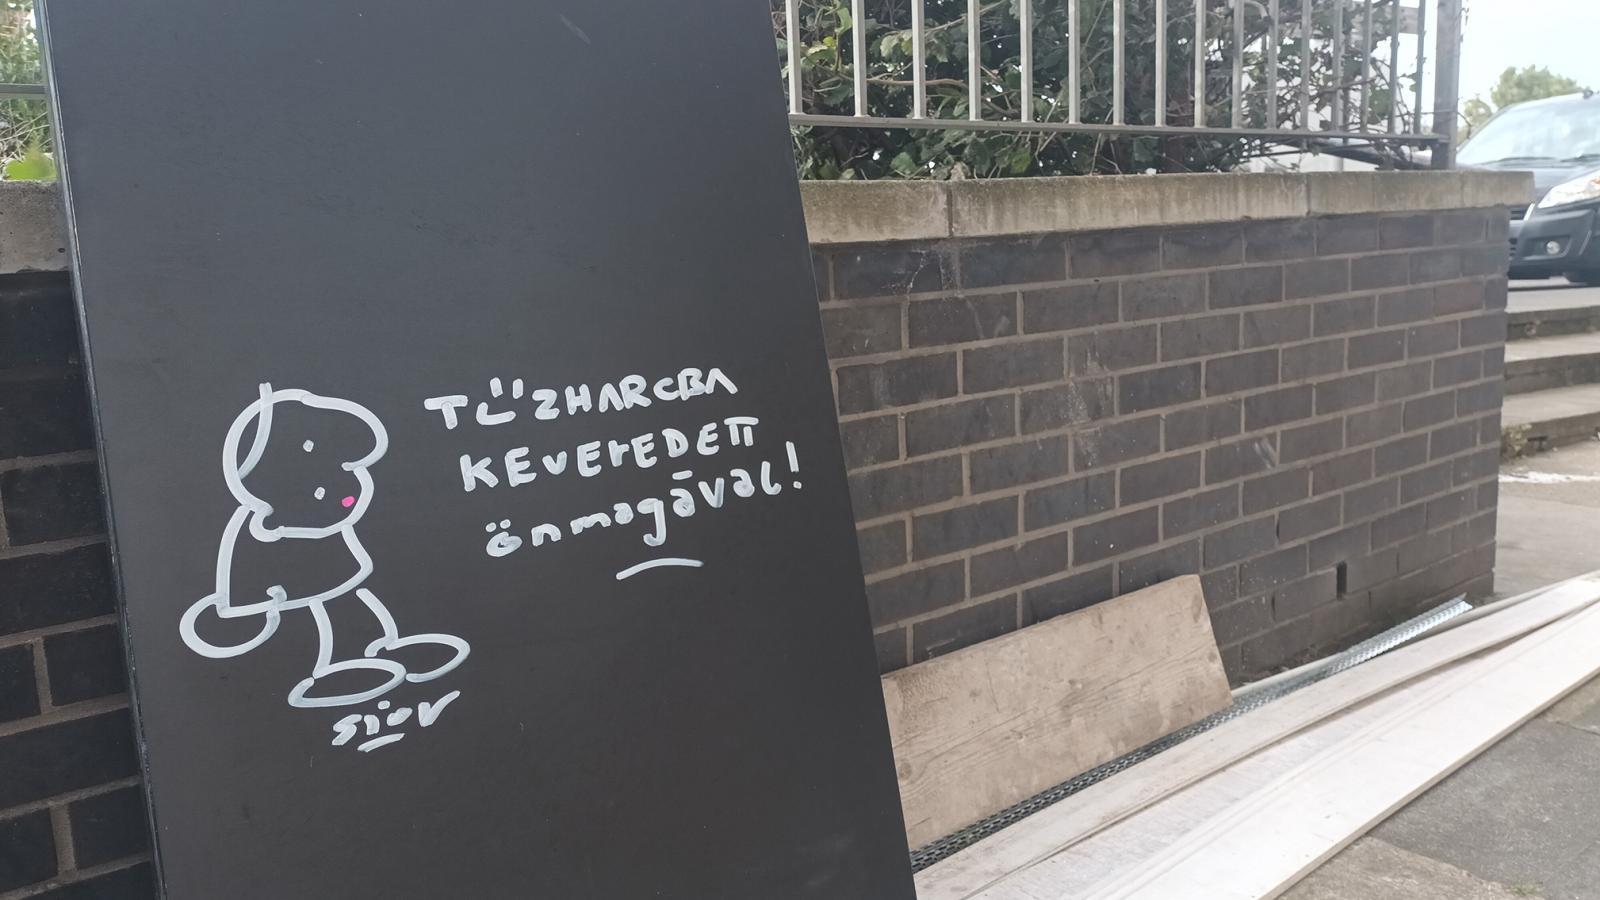 TŰZHARCBA
KEVEREDETT
önmagával!